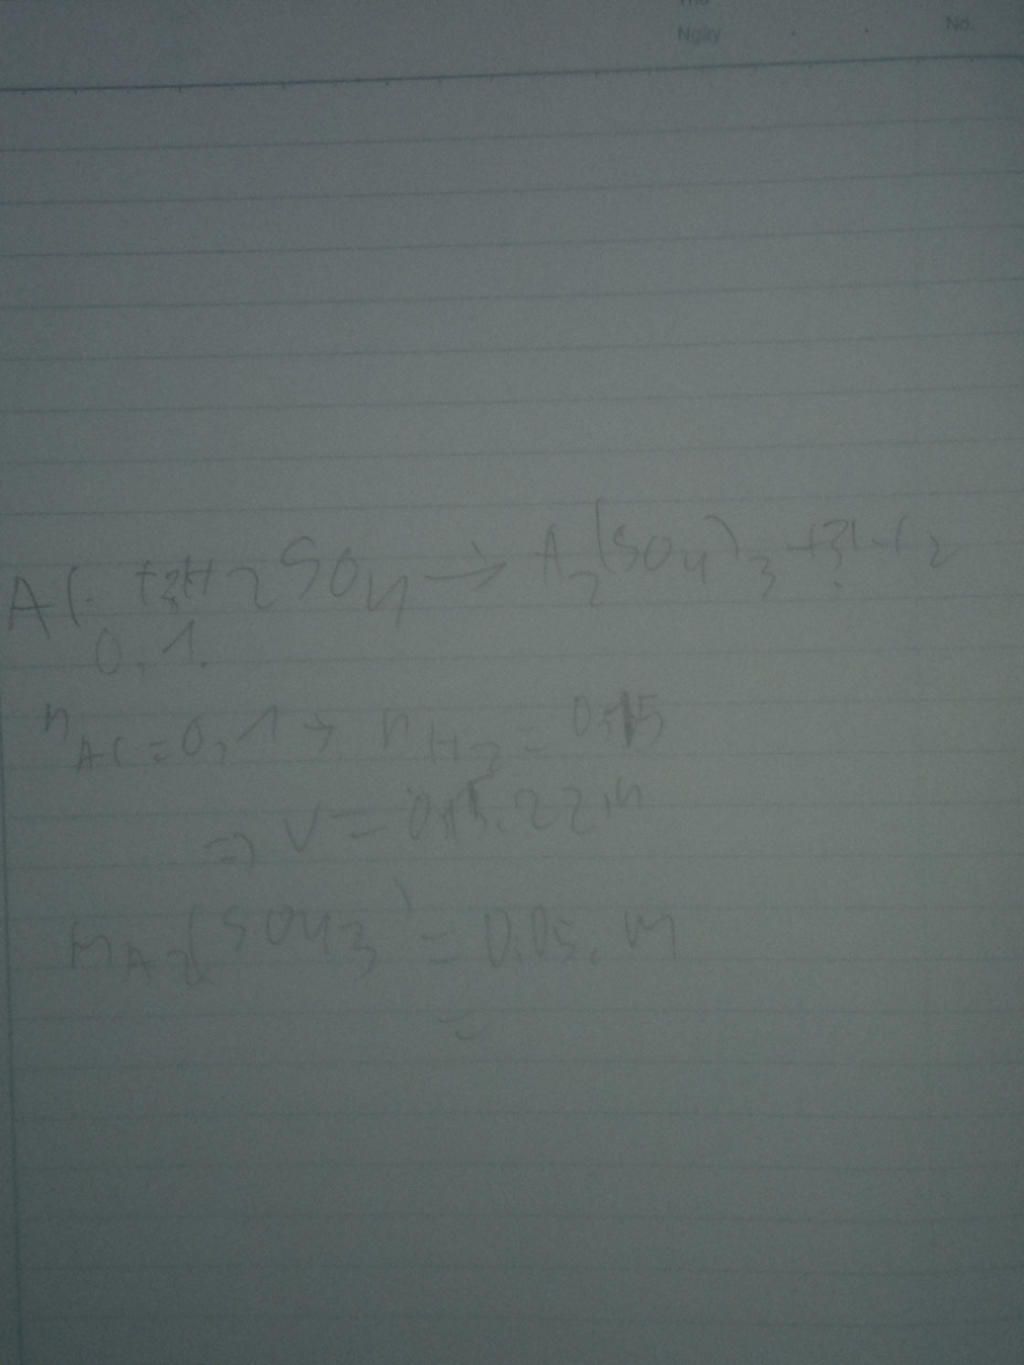 Ngày No.
Al + 3H2SO4 → A2(SO4)3 + 3H2
0,1.
nAl = 0,1 → nH2 = 0,15
=> V = 0,15.22,4
mA2(SO4)3 = 0,05. M
=